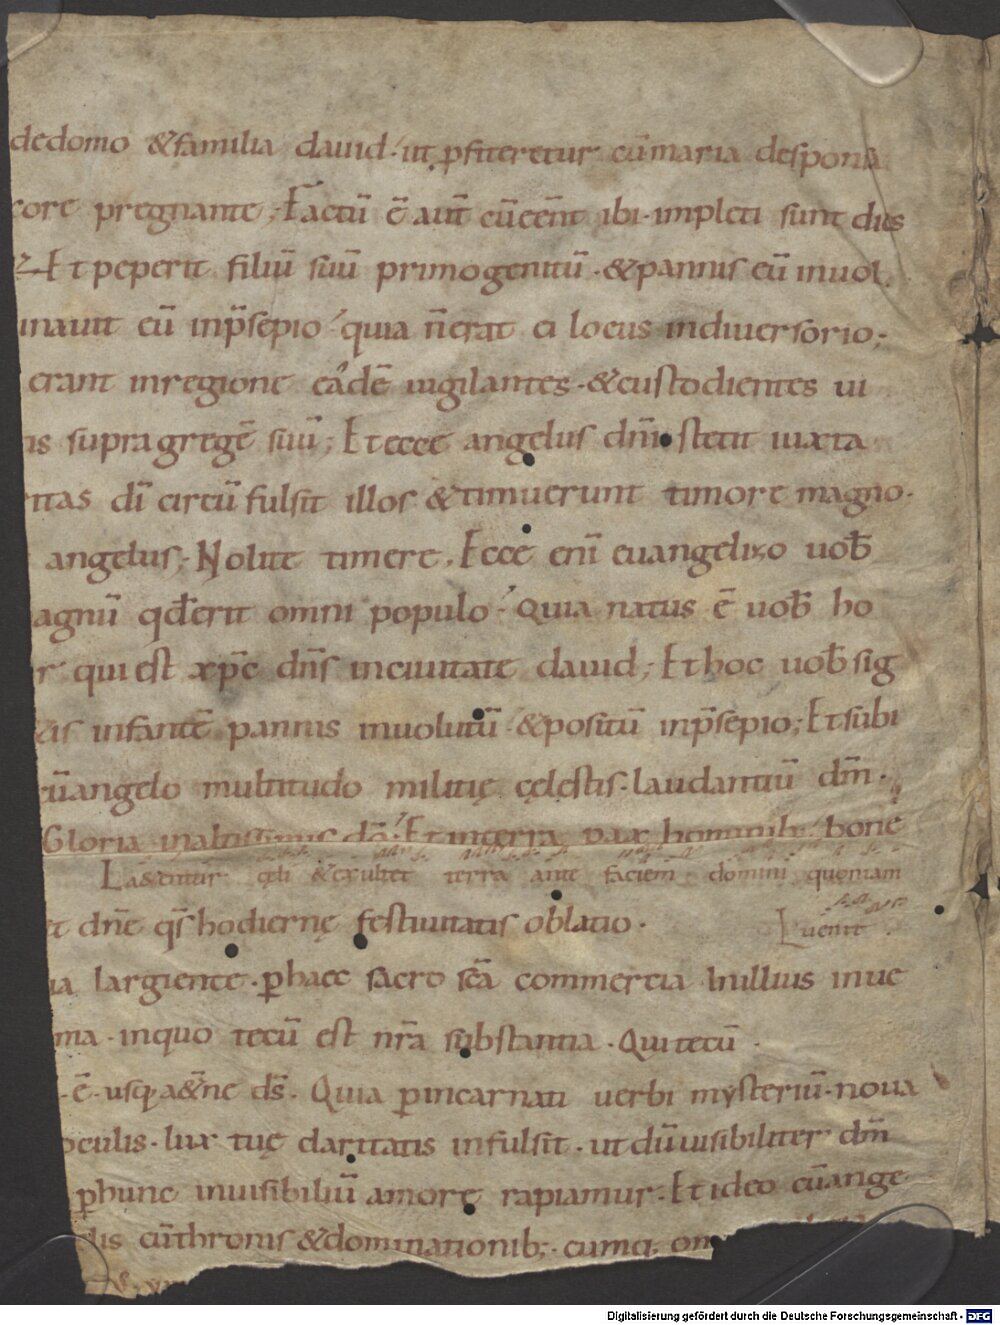 dedomo &familia dauid · ut ꝓfiteretur cū maria desponsa
core pregnante; Factū ē aut̄ cū eēnt ibi · impleti sunt dies
Et peperit filiū suū primogenitū · &pannis eū inuol
inauit eū inp̄sepio quia n̄ erat ei locus indiuersorio;
erant inregione eadē uigilantes · &custodientes ui
is supra gregē suū; Et ecce angelus dn̄i stetit iuxta
ritas dī circū fulsit illos &timuerunt timore magno ·
angelus; Nolite timere. Ecce enī euangelizo uob̄
agnū qđ erit omni populo quia natus ē uob̄ ho
r qui est xp̄c dn̄s inciuitate dauid; Et hoc uob̄ sig
&is infantē pannis inuolutū · &positū inp̄sepio; Et subi
cū angelo multitudo militię cęlestis · laudantiū dm̄ ·
Gloria inaltissimis dō Et interra pax hominib; bone
Laetentur cęli &exultet terra ante faciem domini quoniam
t dn̄e qs̄ hodiernę festiuitatis oblatio ·
uenit ·
ia largiente · ꝑ haec sacro sc̄a commercia Inillius inue
ma · inquo tecū est nr̄a substantia · Qui tecū ·
· ē · usq, a&ne ds̄ · Quia ꝑ incarnati uerbi mysteriū · noua
oculis · lux tuę claritatis infulsit · ut dū uisibiliter dm̄
ꝑ hunc inuisibiliū amorę rapiamur · Et ideo cū ange
lis cū thronis &dominationib; · cumq; om
Digitalisierung gefördert durch die Deutsche Forschungsgemeinschaft - DFG